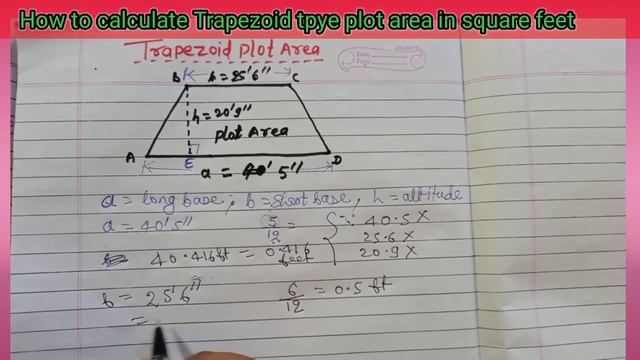 How to calculate Trapezoid tpye plot area in square feet
Trapezoid Plot Area
B b = 25'6" C
h = 20'9"
Plot Area
A E D
a = 40' 5"
a = long base; b = short base, h = altitude
a = 40'5" 5/12 = ∵ 40.5 X
40.416 ft = 0.416 feet 25.6 X
20.9 X
b = 25'6" 6/12 = 0.5 ft
=